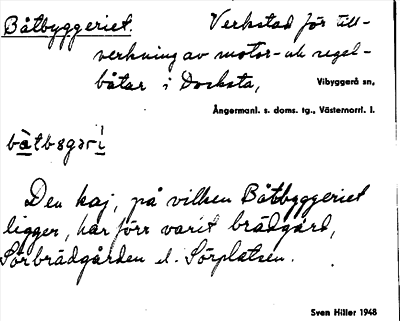 Båtbyggeriet. Verkstad för till-
verkning av motor- uh segel-
båtar i Docksta, Vibyggerå sn,
Ångermanl. s. doms. tg., Västernorrl. l.
Den kaj, på vilken Båtbyggeriet
ligger, har förr varit brädgård,
Sörbrädgården el. Sörplatsen.
Sven Hiller 1948